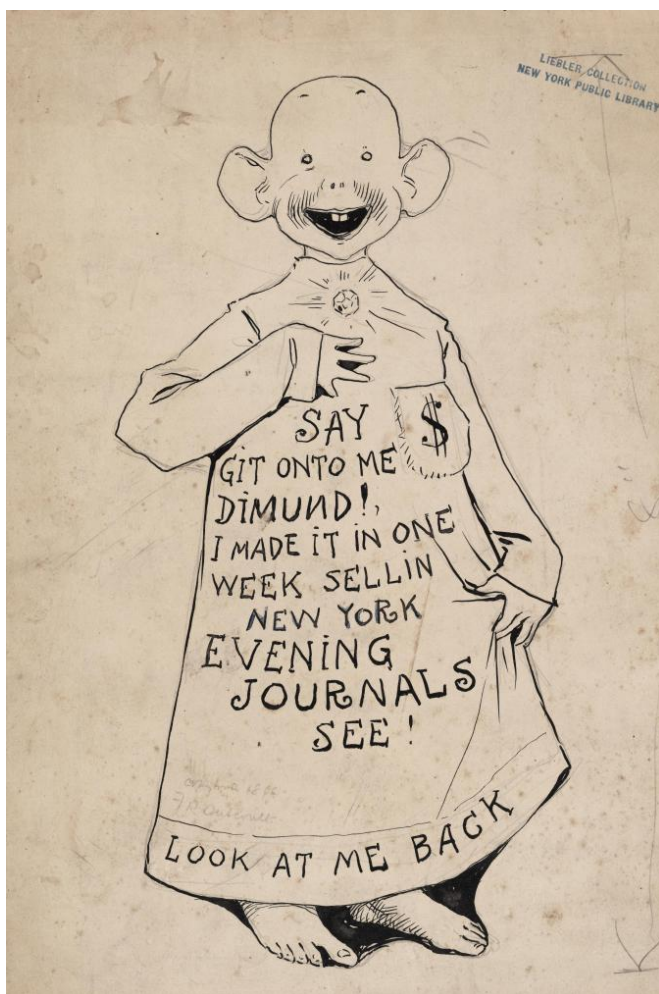 LIEBLER COLLECTION
NEW YORK PUBLIC LIBRARY
$
SAY
GIT ONTO ME
DIMUND!,
I MADE IT IN ONE
WEEK SELLIN
NEW YORK
EVENING
JOURNALS
SEE!
LOOK AT ME BACK